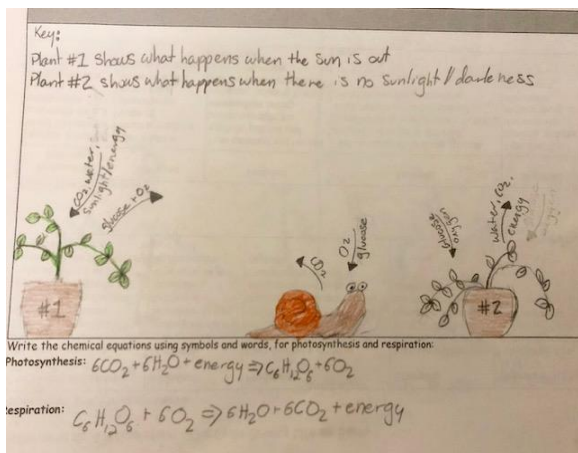 Key:
Plant #1 shows what happens when the sun is out
Plant #2 shows what happens when there is no sunlight // darkness
CO2, water,
sunlight/energy
glucose + O2
#1
CO2
O2
glucose
glucose
oxygen
water, CO2,
energy
#2
Write the chemical equations using symbols and words, for photosynthesis and respiration:
Photosynthesis: 6CO2 + 6H2O + energy => C6H12O6 + 6O2
espiration: C6H12O6 + 6O2 => 6H2O + 6CO2 + energy